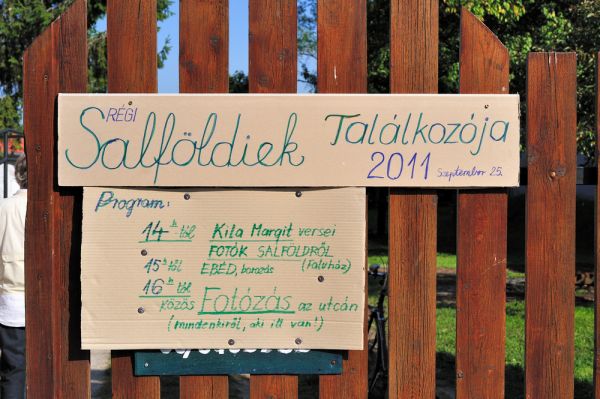 RÉGI
Salföldiek Találkozója
2011 Szeptember 25.
Program:
14 h tól Kita Margit versei
FOTÓK SALFÖLDRŐL
15 h tól EBÉD, borozás (Faluház)
16 h tól
közös Fotózás az utcán
(mindenkiről, aki itt van!)